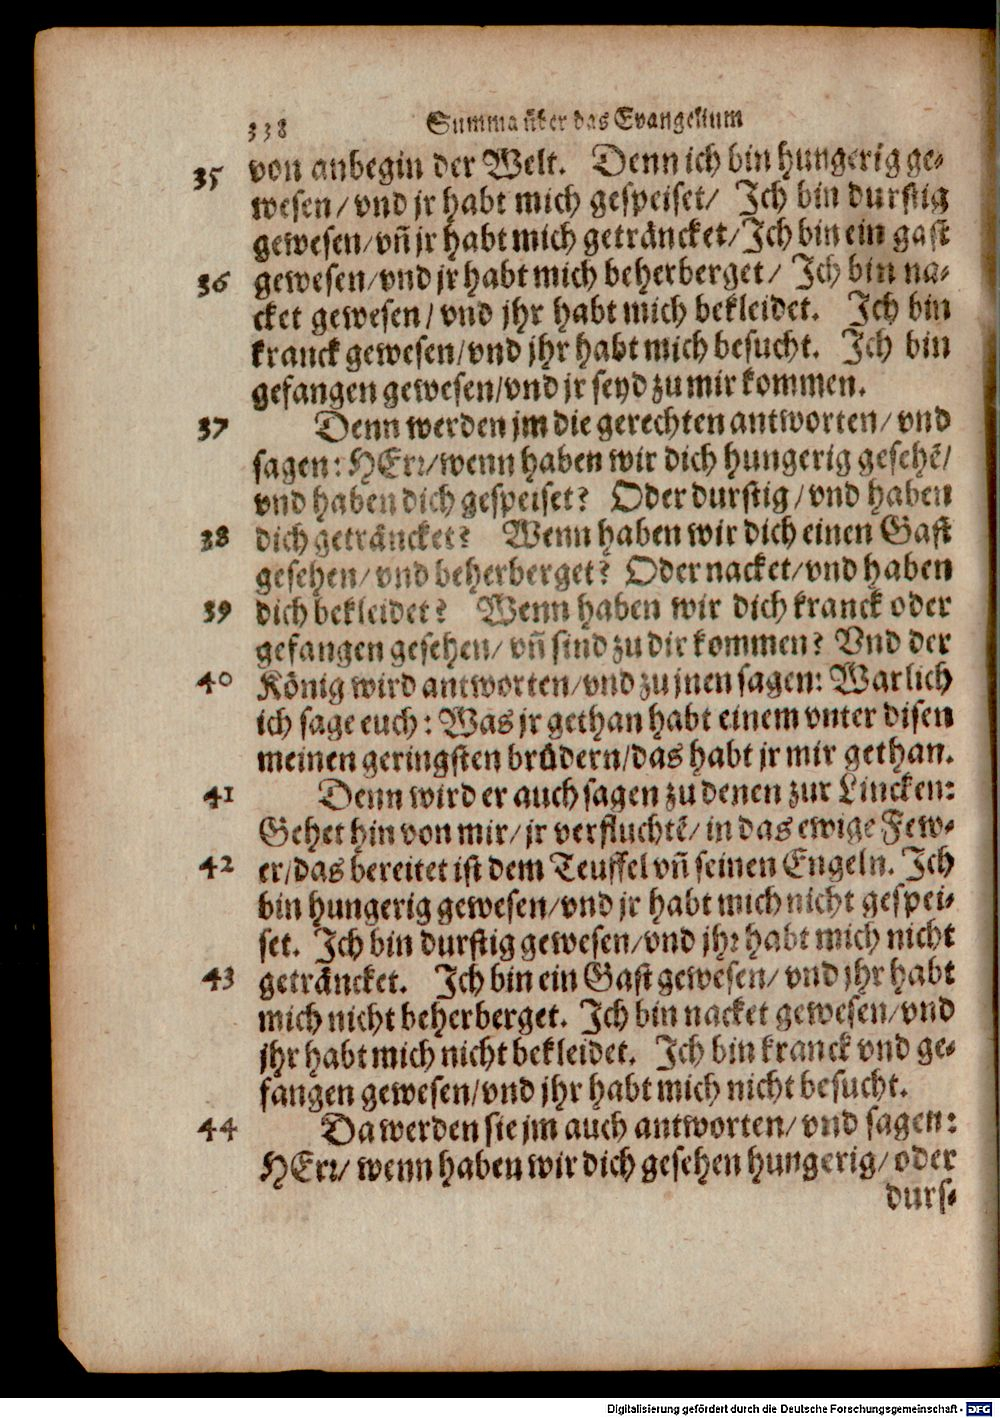 338 Summa über das Evangelium
35 von anbegin der Welt. Denn ich bin hungerig ge-
wesen/ vnd jr habt mich gespeiset/ Ich bin durstig
gewesen/ vñ jr habt mich geträncket/ Ich bin ein gast
36 gewesen/ vnd jr habt mich beherberget/ Ich bin na-
cket gewesen/ vnd jhr habt mich bekleidet. Ich bin
kranck gewesen/ vnd jhr habt mich besucht. Ich bin
gefangen gewesen/ vnd jr seyd zu mir kommen.
37 Denn werden jm die gerechten antworten/ vnd
sagen: HErr/ wenn haben wir dich hungerig gesehẽ/
vnd haben dich gespeiset? Oder durstig/ vnd haben
38 dich geträncket? Wenn haben wir dich einen Gast
gesehen/ vnd beherberget? Oder nacket/ vnd haben
39 dich bekleidet? Wenn haben wir dich kranck oder
gefangen gesehen/ vñ sind zu dir kommen? Vnd der
40 König wird antworten/ vnd zu jnen sagen: Warlich
ich sage euch: Was jr gethan habt einem vnter disen
meinen geringsten brüdern/ das habt jr mir gethan.
41 Denn wird er auch sagen zu denen zur Lincken:
Gehet hin von mir/ jr verfluchtẽ/ in das ewige Few-
42 er/ das bereitet ist dem Teuffel vñ seinen Engeln. Ich
bin hungerig gewesen/ vnd jr habt mich nicht gespei-
set. Ich bin durstig gewesen/ vnd jhr habt mich nicht
43 geträncket. Ich bin ein Gast gewesen/ vnd jhr habt
mich nicht beherberget. Ich bin nacket gewesen/ vnd
jhr habt mich nicht bekleidet. Ich bin kranck vnd ge-
fangen gewesen/ vnd jhr habt mich nicht besucht.
44 Da werden sie jm auch antworten/ vnd sagen:
HErr/ wenn haben wir dich gesehen hungerig/ oder
durs-
Digitalisierung gefördert durch die Deutsche Forschungsgemeinschaft - DFG